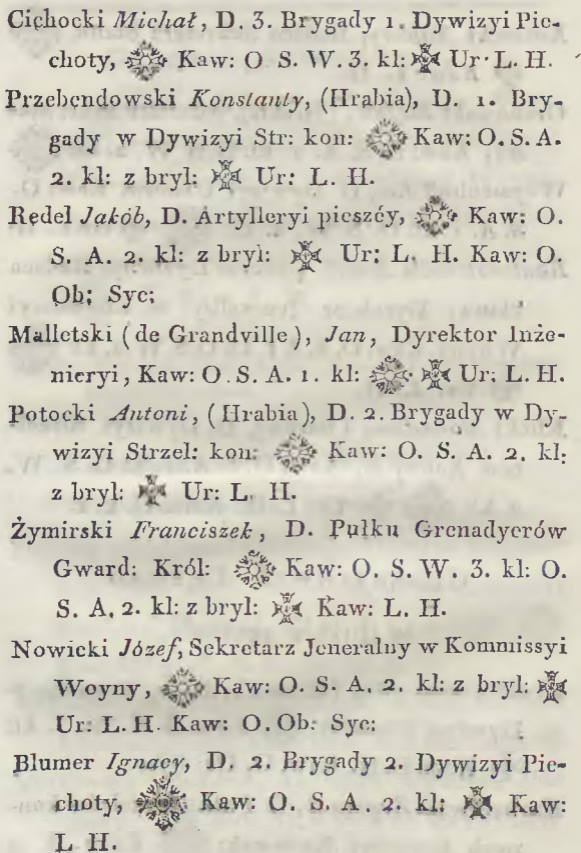 Cichocki Michał, D. 3. Brygady 1. Dywizyi Pie-
choty, Kaw: O S. W. 3. kl: Ur· L. H.
Przebendowski Konstanty, (Hrabia), D. 1. Bry-
gady w Dywizyi Str: kon: Kaw: O. S. A.
2. kl: z bryl: Ur: L. H.
Rędel Jakób, D. Artylleryi pieszéy, Kaw: O.
S. A. 2. kl: z bryl: Ur: L. H. Kaw: O.
Ob: Syc:
Malletski (de Grandville), Jan, Dyrektor Inże-
nieryi, Kaw: O. S. A. 1. kl: Ur: L. H.
Potocki Antoni, (Hrabia), D. 2. Brygady w Dy-
wizyi Strzel: kon: Kaw: O. S. A. 2. kl:
z bryl: Ur: L. H.
Żymirski Franciszek, D. Pułku Grenadyerów
Gward: Król: Kaw: O. S. W. 3. kl: O.
S. A. 2. kl: z bryl: Kaw: L. H.
Nowicki Józef, Sekretarz Jeneralny w Kommissyi
Woyny, Kaw: O. S. A. 2. kl: z bryl:
Ur: L. H. Kaw: O. Ob: Syc:
Blumer Ignacy, D. 2. Brygady 2. Dywizyi Pie-
choty, Kaw: O. S. A. 2. kl: Kaw:
L H.